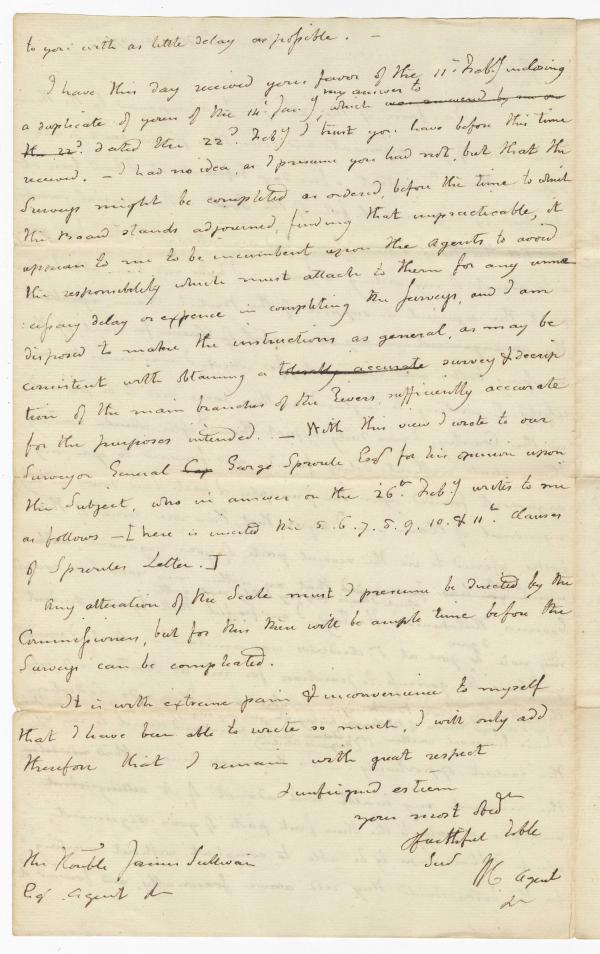 to you with as little delay as possible. —
I have this day received your favor of the 11th Feby inclosing
a duplicate of yours of the 14th Jany, my answer to which was answered by me on
the 22d. dated the 22d. Feby I trust you have before this time
received. — I had no idea, as I presume you had not, but that the
Surveys might be completed as ordered, before the time to which
the Board stands adjourned, finding that impracticable, it
appears to me to be incumbent upon the Agents to avoid
the responsibility which must attach to them for any unne
:cessary delay or expence in completing the Surveys, and I am
disposed to make the instructions as general, as may be
consistent with obtaining a tolerably accurate survey & descrip
tion of the main branches of the Rivers sufficiently accurate
for the purposes intended. — With this view I wrote to our
Surveyor General Cap George Sproule Esqr for his opinion upon
the Subject, who in answer on the 26th Feby writes to me
as follows — [here is inserted the 5. 6. 7. 8. 9. 10. & 11th. Clauses
of Sproules Letter.]
Any alteration of the Scale must I presume be directed by the
Commissioners, but for this there will be ample time before the
Surveys can be compleated.
It is with extreme pain & inconvenience to myself
that I have been able to write so much, I will only add
therefore that I remain with great respect
& unfeigned esteem
your most obedt
& faithful Hble
Sert
The Honble James Sullivan
Esqr. Agent &c
Agent
&c